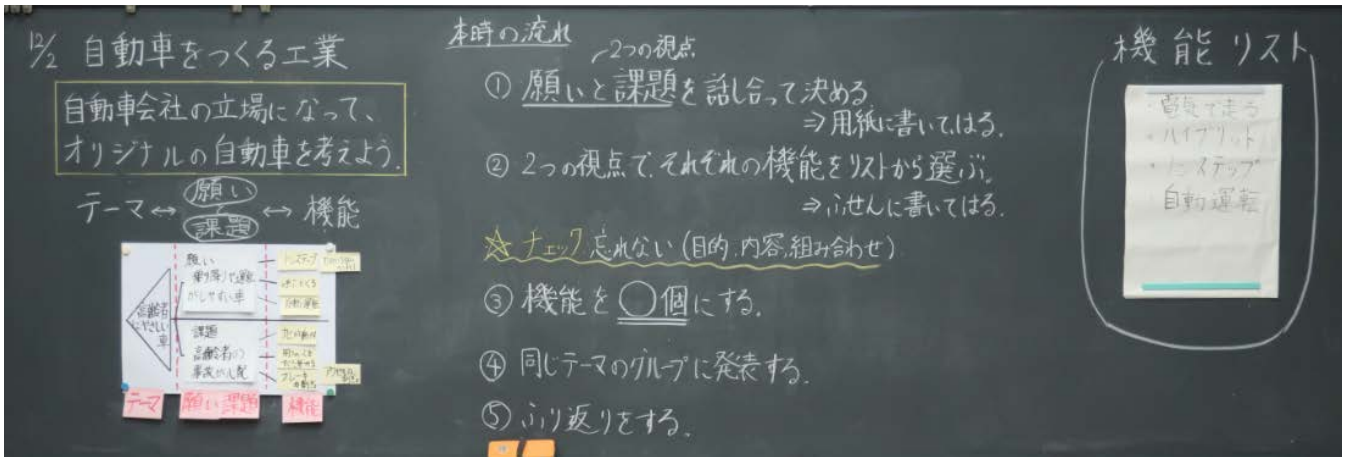 12/2 自動車をつくる工業
自動車会社の立場になって、
オリジナルの自動車を考えよう。
テーマ↔願いと課題↔機能
高齢者
にやさしい
車
願い
乗り降りや運転
がしやすい車
ノンステップ
自動運転
課題
高齢者の
事故が心配
ブレーキ
テーマ
願い
課題
機能
本時の流れ
2つの視点
① 願いと課題を話し合って決める
⇒用紙に書いてはる。
② 2つの視点で、それぞれの機能をリストから選ぶ。
⇒ふせんに書いてはる。
☆チェック 忘れない(目的、内容、組み合わせ)
③ 機能を○個にする。
④ 同じテーマのグループに発表する。
⑤ ふり返りをする。
機能リスト
・電気で走る
・ハイブリット
・ノンステップ
自動運転